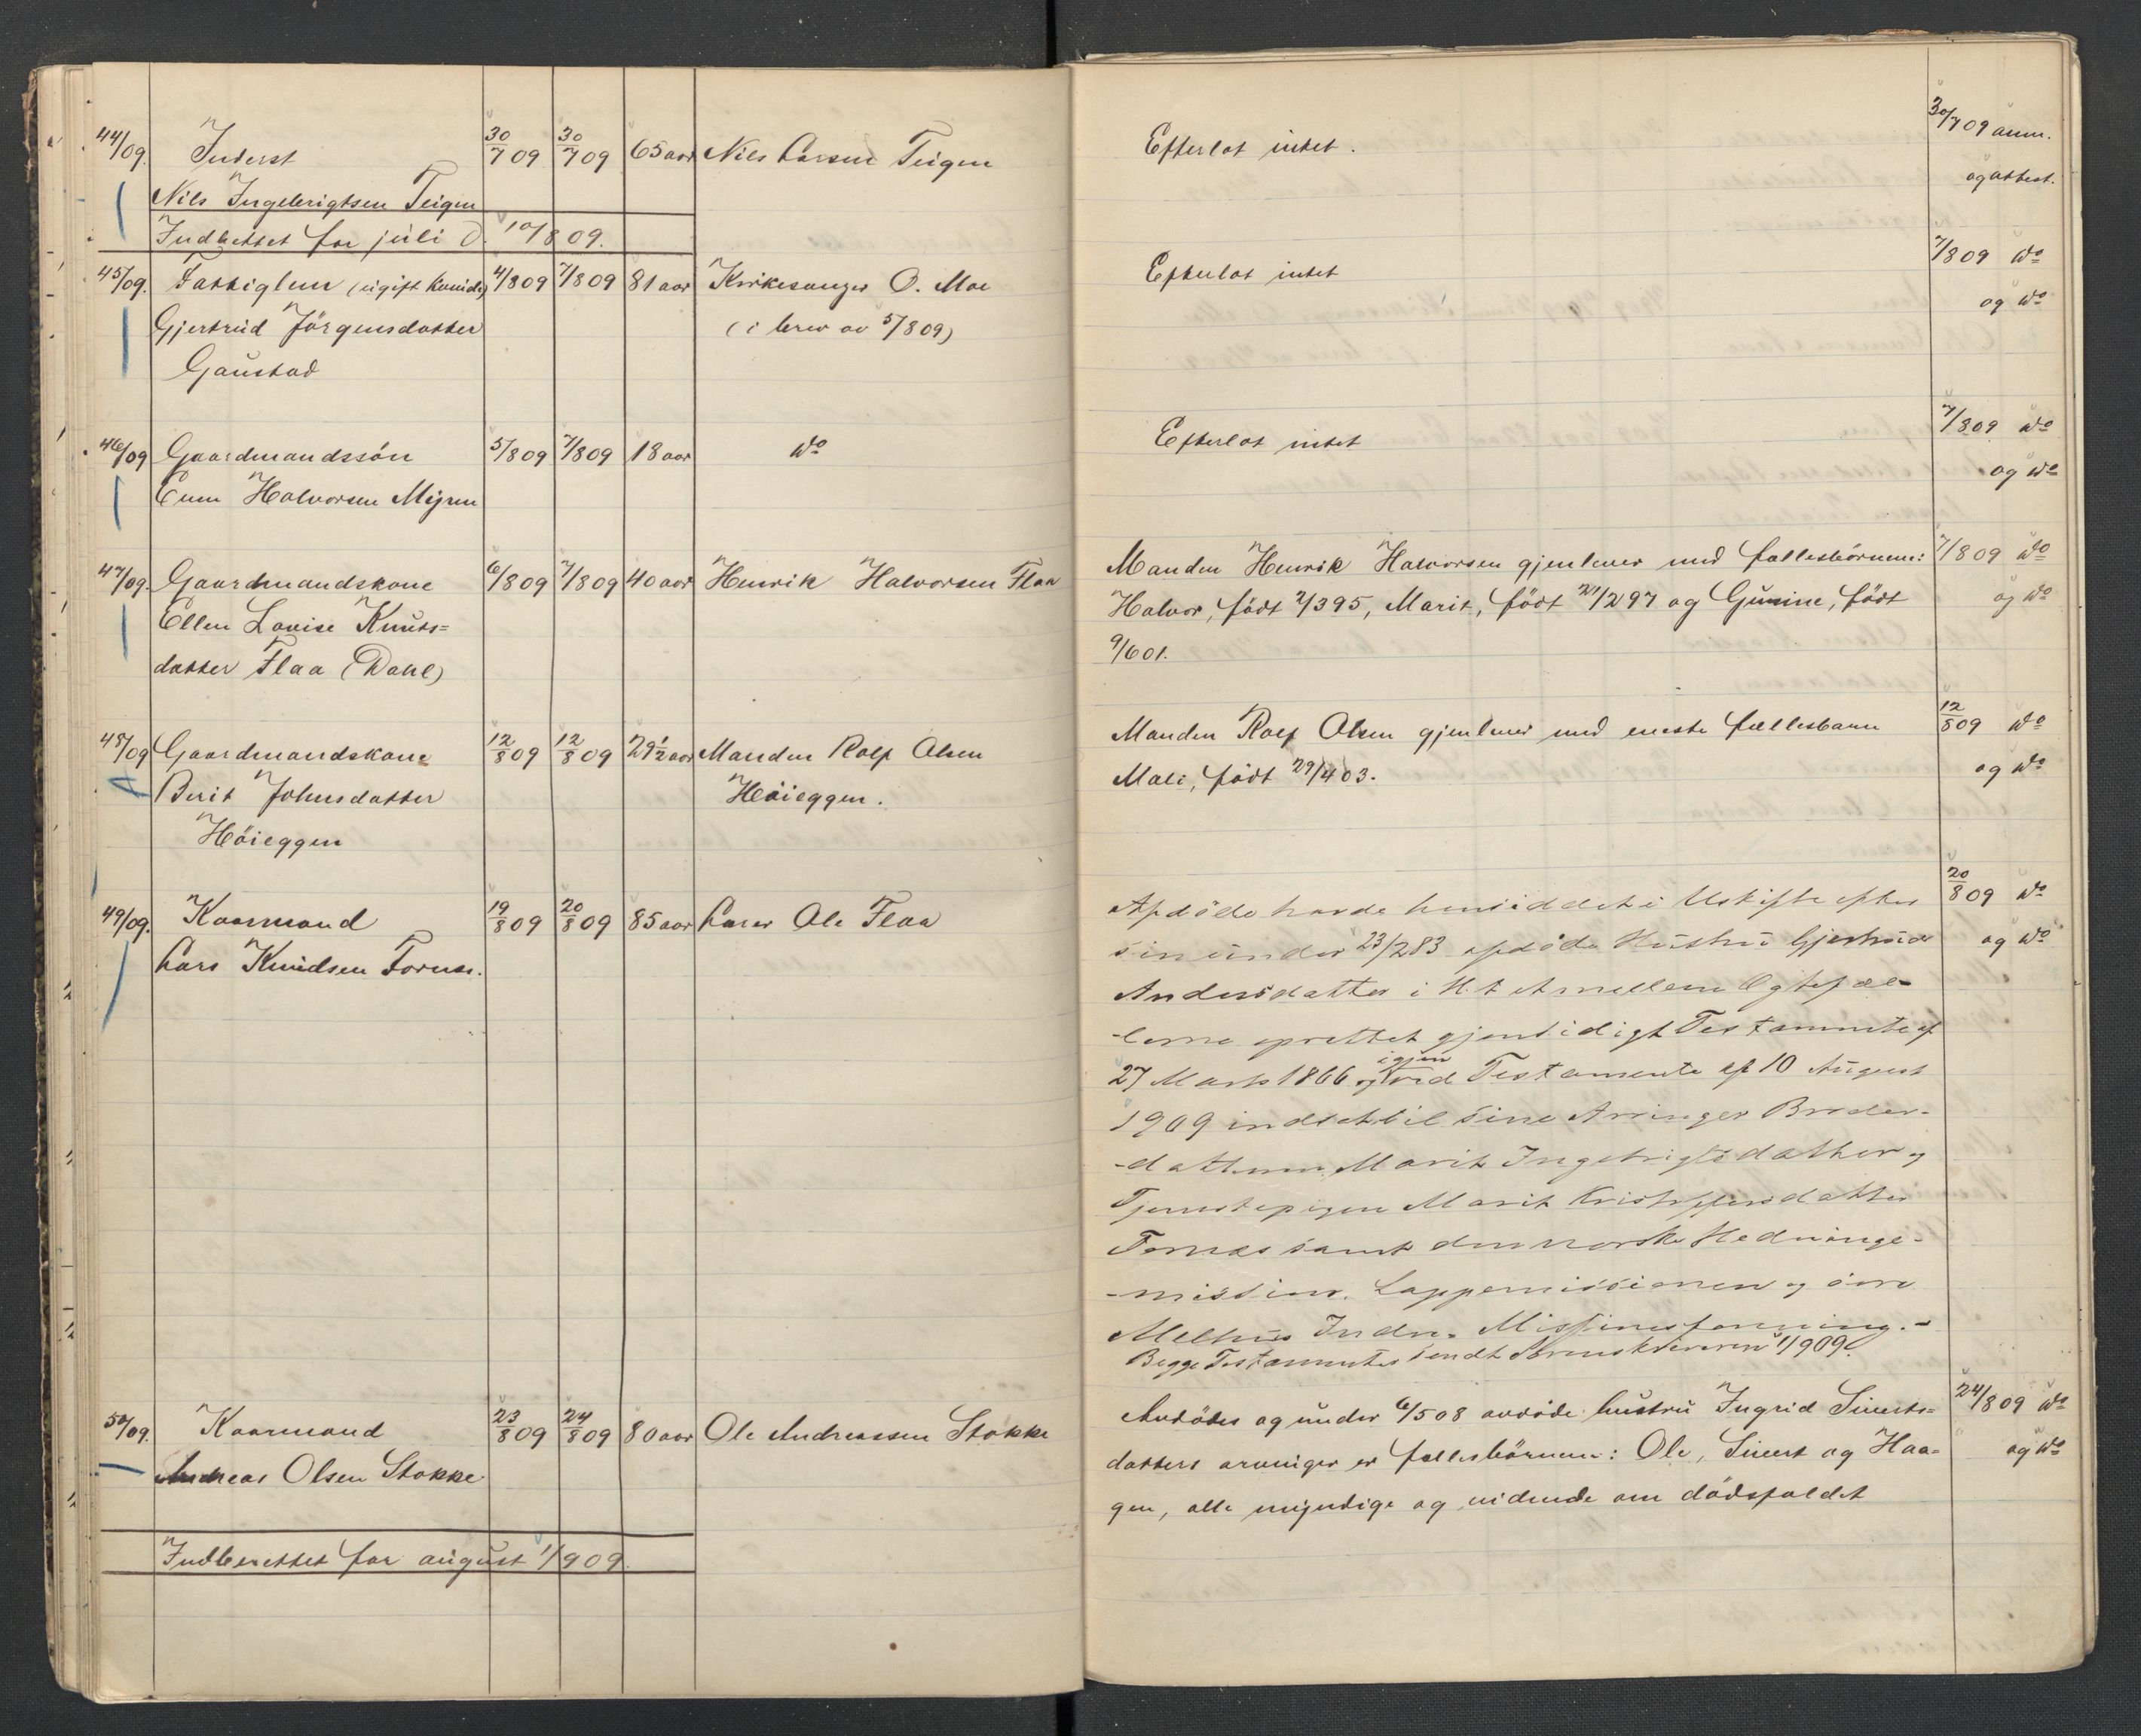 44/09. Inderst 30/7 09 30/7 09 65 aar Nils Larsen Teigen Efterlot intet. 30/7 09 anm.
Nils Ingebrigtsen Teigen og attest.
Indberettet for juli d. 10/8 09.
45/09. Fattiglem (ugift kvinde) 4/8 09 7/8 09 81 aar Kirkesanger O. Moe Efterlot intet 7/8 09 do
Gjertrud Jörgensdatter (i brev av 5/8 09) og do
Gaustad
46/09 Gaardmandssön 5/8 09 7/8 09 18 aar do Efterlot intet 7/8 09 do
Enen Halvorsen Myren og do
47/09. Gaardmandskone 6/8 09 7/8 09 40 aar Henrik Halvorsen Flaa Manden Henrik Halvorsen gjenlever med fællesbörnene: 7/8 09 do
Ellen Lovise Knuts= Halvor, födt 2/3 95, Marit, födt 21/2 97 og Gunine, födt og do
datter Flaa (Dahl) 9/6 01.
48/09 Gaardmandskone 12/8 09 12/8 09 29 1/2 aar Manden Rolf Olsen Manden Rolf Olsen gjenlever med eneste fællesbarn 12/8 09 do
Berit Johnsdatter Höieggen. Mali, födt 29/4 03. og do
Höieggen
49/09. Kaarmand 19/8 09 20/8 09 85 aar Lærer Ole Flaa Afdöde havde hensiddet i Uskifte efter 20/8 09 do
Lars Knudsen Fornæs. sin under 23/2 83 afdöde Hustru Gjertrud og do
Andersdatter i H. t. et mellem Ægtefæl-
-lerne oprettet gjensidigt Testamente af
27 Marts 1866 og igjen ved Testamente af 10 August
1909 indsat til sine Arvinger Broder-
-datteren Marit Ingebrigtsdatter og
Tjenestepigen Marit Kristoffersdatter
Fornæs samt den norske Hedninge-
-mission, Lappemissionen og övre
Melhus Indre Missionsforening.-
Begge Testamenter sendt Sorenskriveren 1/9 09.
50/09. Kaarmand 23/8 09 24/8 09 80 aar Ole Andreassen Stokke Avdödes og under 6/5 08 avdöde hustru Ingrid Siverts= 24/8 09 do
Andreas Olsen Stokke datters arvinger er fællesbörnene: Ole, Sivert og Haa= og do
gen, alle myndige og vidende om dödsfaldet
Indberettet for august 1/9 09.